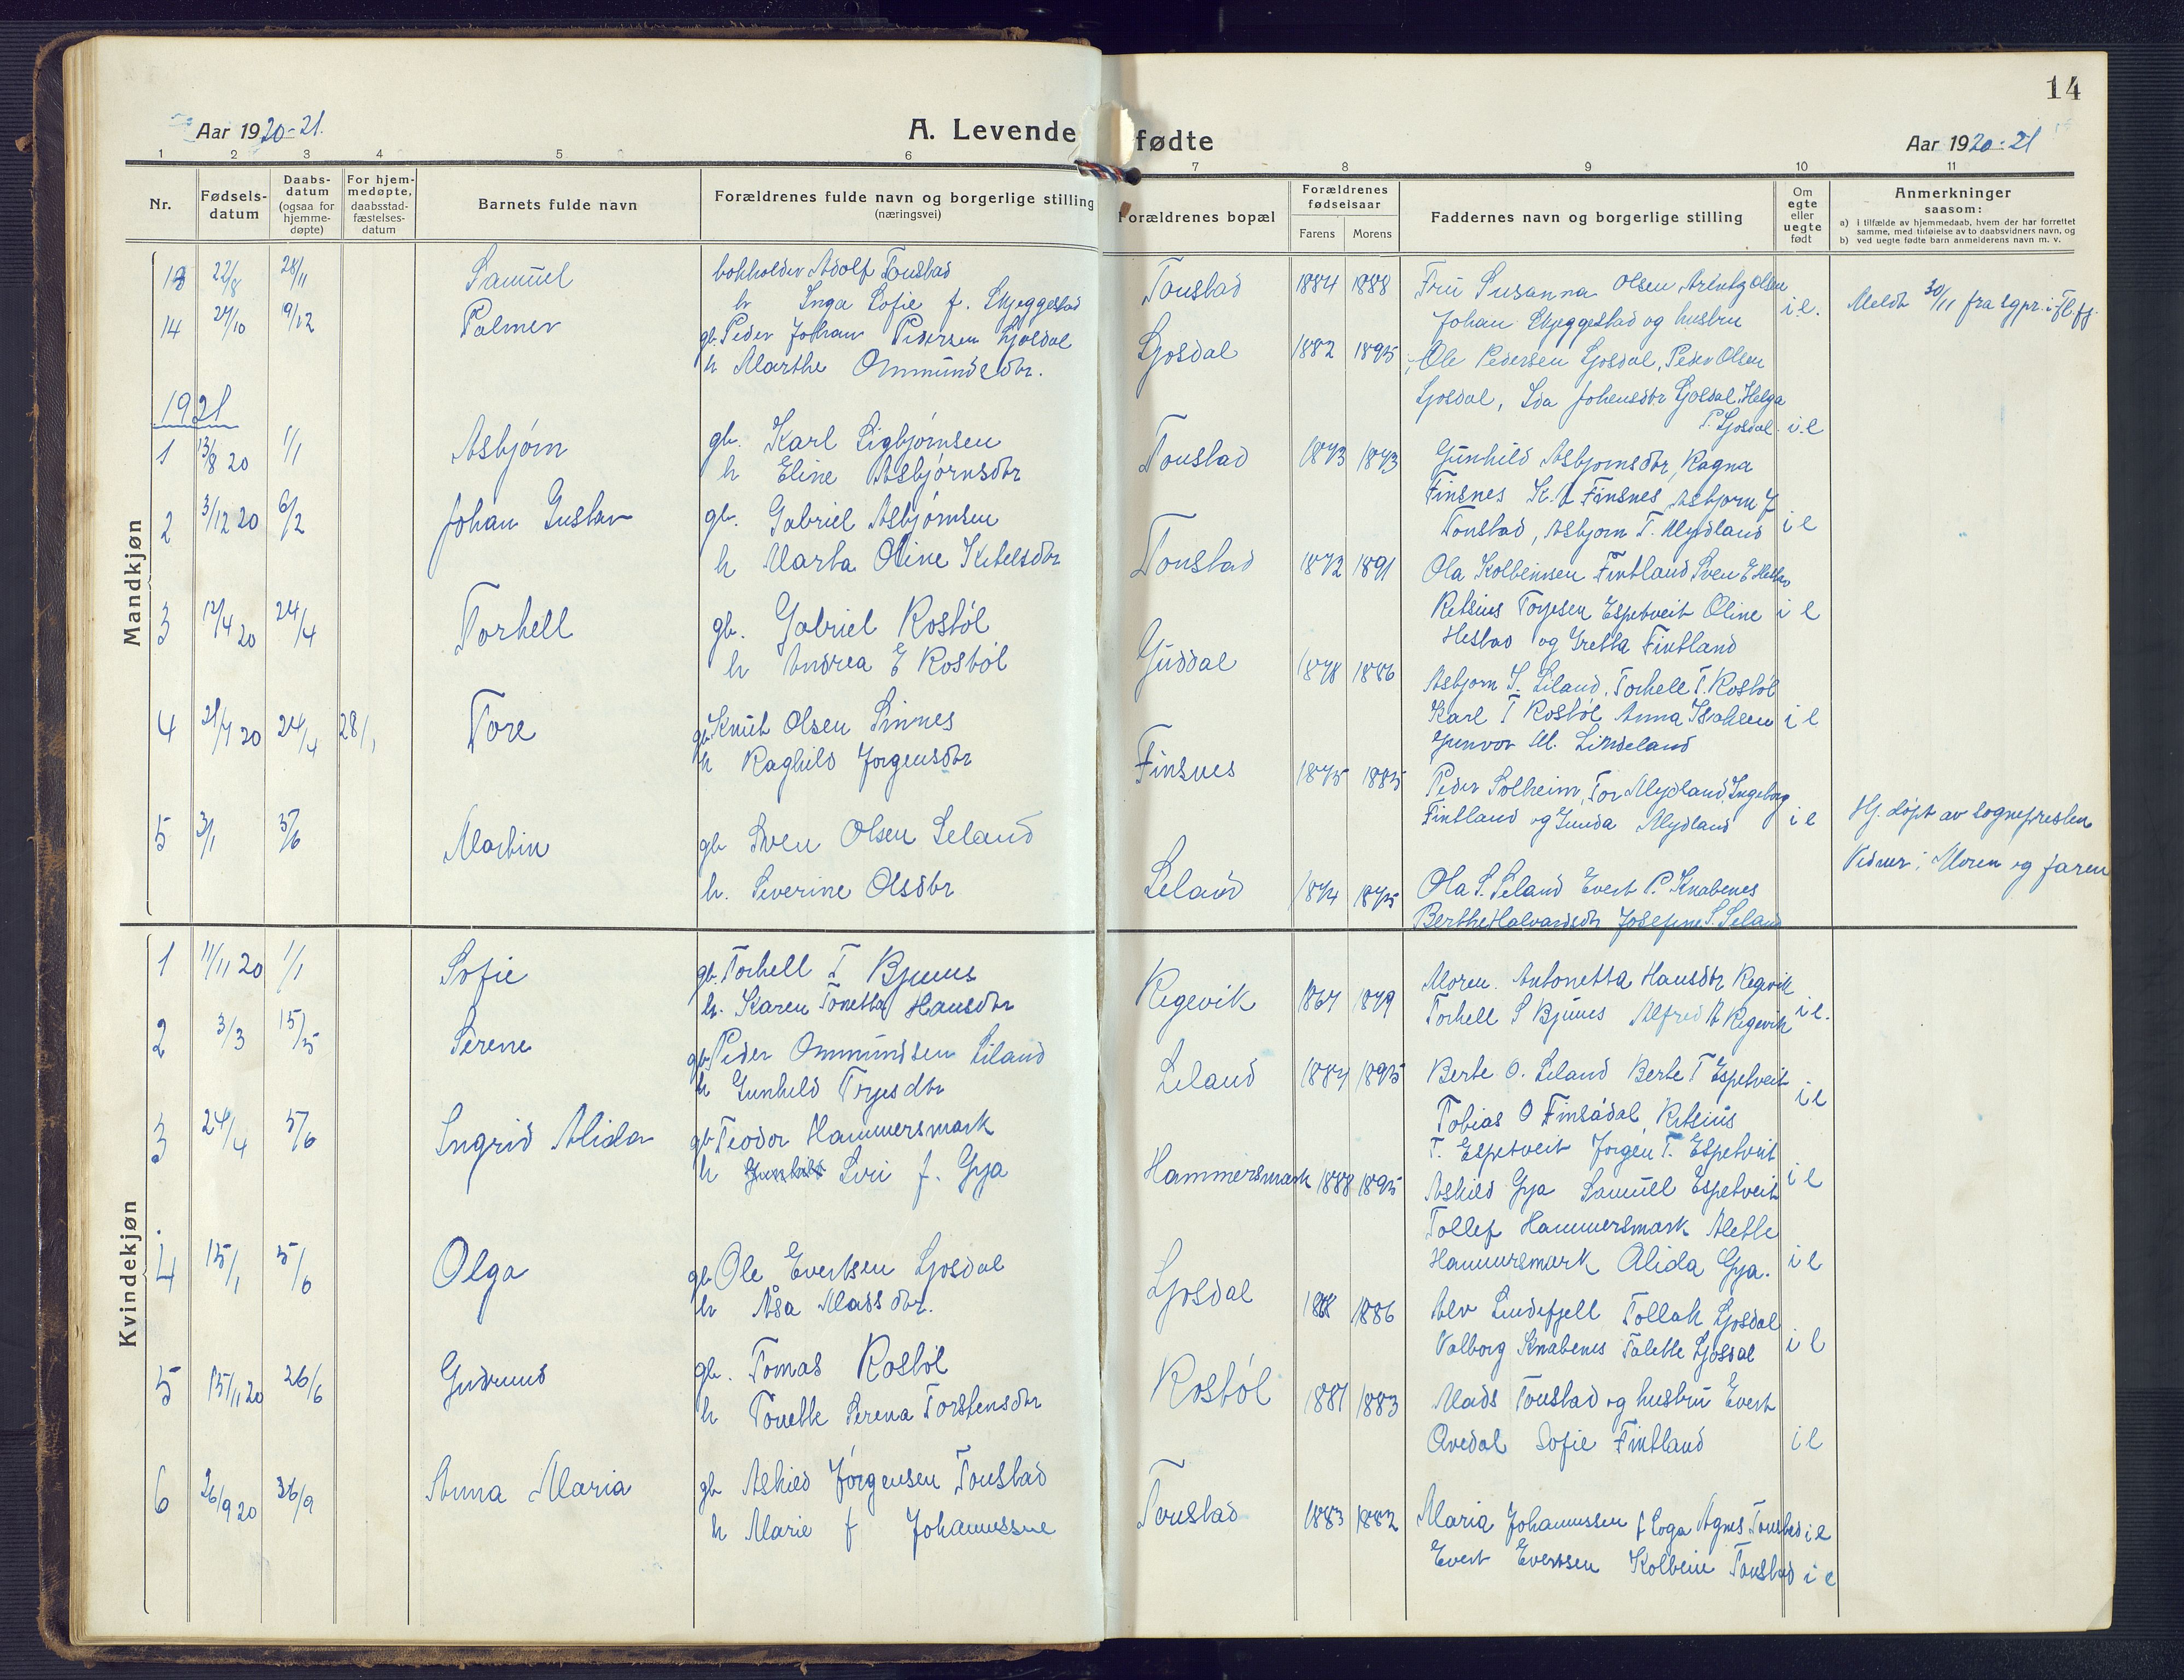 14
Aar 1920-21.
A. Levende fødte
Aar 1920-21
1 2 3 4 5 6 7 8 9 10 11
Nr.
Fødsels-
datum
Daabs-
datum
(ogsaa for
hjemme-
døpte)
For hjem-
medøpte,
daabsstad-
fæstelses-
datum
Barnets fulde navn
Forældrenes fulde navn og borgerlige stilling
(næringsvei)
Forældrenes bopæl
Forældrenes
fødselsaar
Farens Morens
Faddernes navn og borgerlige stilling
Om
egte
eller
uegte
født
Anmerkninger
saasom:
a) i tilfælde av hjemmedaab, hvem der har forrettet
samme, med tilføielse av to daabsvidners navn, og
b) ved uegte fødte barn anmelderens navn m. v.
Mandkjøn
13 22/8 28/11 Samuel
bokholder Adolf Tonstad
h Inga Sofie f. Skjeggestad
Tonstad 1884 1888
Fru Susanna Olsen Olsen
Johan Skjeggestad og hustru
i.e.
Meldt 30/11 fra sgpr. i Fl.fj.
14 24/10 19/12 Palmer
gb. Peder Johan Pedersen Ljosdal
h Marthe Ommundsdtr.
Ljosdal 1882 1895
Ole Pedersen Ljosdal, Peder Olsen
Ljosdal, Ida Johensdtr Ljosdal, Helga
P. Ljosdal. i.e
1921
1 13/8 20 1/1 Asbjørn
gb. Karl Sigbjørnsen
h Eline Asbjørnsdtr
Tonstad 1873 1873
Gunhild Asbjornsdtr, Ragna
Finsnes K. Finsnes, Asbjorn J
Tonstad, Asbjorn T. Mydland i e
2 3/12 20 6/2 Johan Gustav
gb. Gabriel Asbjørnsen
h Marta Oline Ketelsdtr
Tonstad 1872 1891
Ola Kolbeinsen Fintland Sven E Hestad
Retsius Torjesen Espetveit Oline i e
Hestad og Gretha Fintland
3 12/4 20 24/4 Torkell
gb. Gabriel Rostøl
h Andrea E Rostøl
Guddal 1878 1886
Asbjorn S. Liland, Torkell T. Rostøl
Karl T Rostøl Anna Isaksen i e
Gunvor M. Lindeland
4 21/7 20 24/4 28/1 Tore
gb Knut Olsen Sinnes
h Raghild Jorgensdtr
Finsnes 1875 1885
Peder Solheim, Tor Mydland, Ingeborg
Fintland og Gunda Mydland i e
Hj. døpt av sognepresten
Vidner: Moren og faren
5 3/1 5/6 Martin
gb Sven Olsen Seland
h. Severine Olsdtr
Seland 1874 1875
Ola S. Seland Evert P. Knabenes
Berthe Halvardsdtr Josefine S. Seland
Kvindekjøn
1 11/11 20 1/1 Sofie
gb. Torkell T Bjunes
h. Karen Tonetta Hansdtr
Regevik 1867 1879
Moren. Antonetta Hansdtr Regevik
Torkell S Bjunes Alfred A Regevik i e.
2 3/3 15/5 Serene
gb Peder Ommundsen Liland
h Gunhild Torjesdtr
Liland 1887 1895
Berte O. Liland Berte T Espetveit
Tobias O Finsådal, Retsius
T. Espetveit Jorgen T. Espetveit
i e
3 24/4 5/6 Ingrid Alida
gb Teodor Hammersmark
h Siri f. Gya
Hammersmark 1888 1895
Askild Gya Samuel Espetveit i e
Tollef Hammersmark Mette
Hammersmark Alida Gya. i e
4 15/1 5/6 Olga
gb Ole Evertsen Ljosdal
h Åsa Madsdtr.
Ljosdal 1886
Alv Lindefjell Tollak Ljosdal
Valborg Knabenes Talette Ljosdal i e
5 15/11 20 26/6 Gudrund
gb. Tomas Rostøl
h Tonette Serena Torstensdtr
Rostøl 1881 1883
Mads Tonstad og hustru Evert
Ovedal Sofie Fintland i e
6 26/9 20 26/9 Anna Maria
gb Askild Jørgensen Tonstad
h Marie f Johannessne
Tonstad 1883 1882
Maria Johannessen f Loga Agnes Tonstad i e
Evert Evertsen Kolbein Tonstad i e